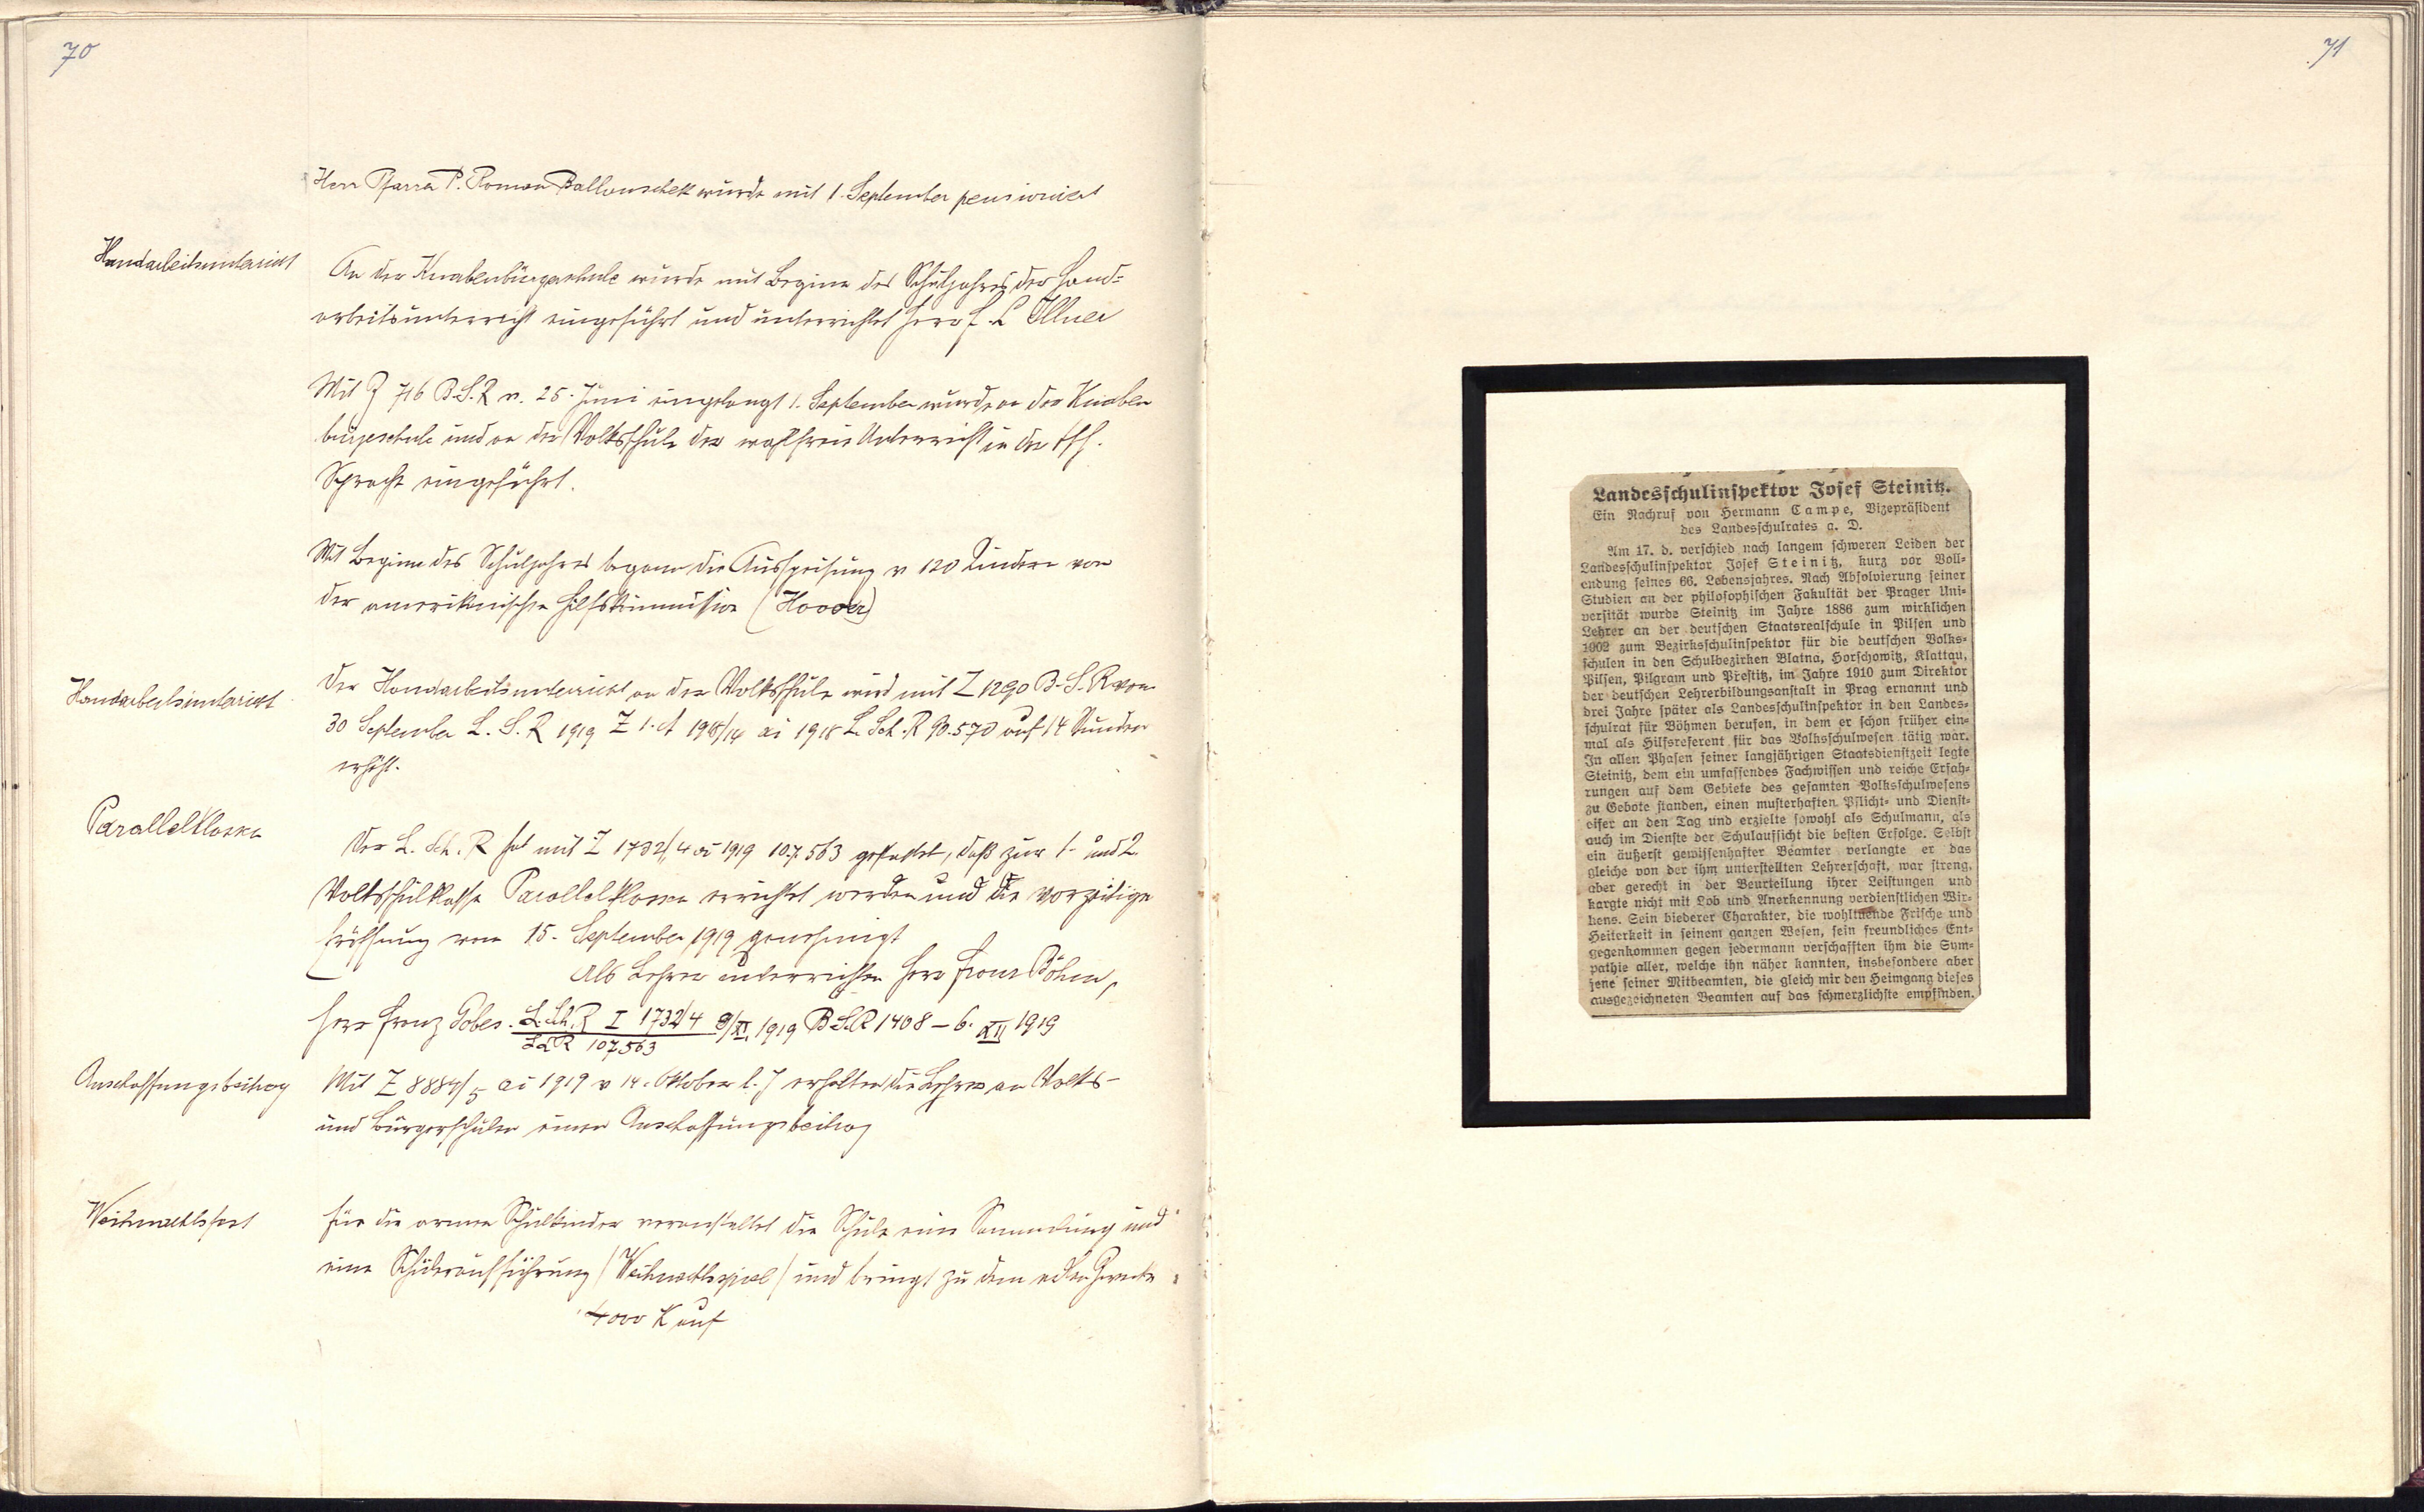 70
Herr Pfarrer P. Roman Ballouschek wurde mit 1. September pensioniert
Handarbeitsunterricht
An der Knabenbürgerschule wurde mit Beginn des Schuljahres der Hand-
arbeitsunterricht eingeführt und unterrichtet Herr F. L. Illner
Mit Z 716 B.S.R v. 25. Juni eingelangt 1. September wurde an der Knaben
bürgerschule und an der Volksschule der wahlfreie Unterricht in der tsch.
Sprache eingeführt.
Mit Beginn des Schuljahres begann die Ausspeisung v 120 Kindern von
der amerikanischen Hilfskommission (Hoover)
Handarbeitsunterricht
Der Handarbeitsunterricht an der Volksschule wird mit Z 1290 B.S.R vom
30 September L.S.R 1919 Z 1. A 198/14 ai 1918 L. Sch. R 90.570 auf 14 Stunden
erhöht.
Parallelklassen
Der L. Sch. R hat mit Z 1732/4 ai 1919 107.563 gestattet, daß zur 1. und 2.
Volksschulklasse Parallelklassen errichtet werden und die vorzeitige
Eröffnung vom 15. September 1919 genehmigt
Als Lehrer unterrichten Herr Franz Böhm,
Herr Franz Gobes. L. Sch. R I 1732/4 9/XI. 1919 B.S.R 1408 – 6. XII 1919
LSR 107563
Anschaffungsbeitrag
Mit Z 8884/5 ai 1919 v 14. Oktober l. J erhalten die Lehrer an Volks-
und Bürgerschulen einen Anschaffungsbeitrag
Weihnachtsfest
Für die armen Schulkinder veranstaltet die Schule eine Sammlung und
eine Schüleraufführung (Weihnachtsspiel) und bringt zu dem edlen Zwecke
4000 K auf
71
Landesschulinspektor Josef Steinitz.
Ein Nachruf von Hermann Campe, Vizepräsident
des Landesschulrates a. D.
Am 17. d. verschied nach langem schweren Leiden der
Landesschulinspektor Josef Steinitz, kurz vor Voll-
endung seines 66. Lebensjahres. Nach Absolvierung seiner
Studien an der philosophischen Fakultät der Prager Uni-
versität wurde Steinitz im Jahre 1886 zum wirklichen
Lehrer an der deutschen Staatsrealschule in Pilsen und
1902 zum Bezirksschulinspektor für die deutschen Volks-
schulen in den Schulbezirken Blatna, Horschowitz, Klattau,
Pilsen, Pilgram und Prestitz, im Jahre 1910 zum Direktor
der deutschen Lehrerbildungsanstalt in Prag ernannt und
drei Jahre später als Landesschulinspektor in den Landes-
schulrat für Böhmen berufen, in dem er schon früher ein-
mal als Hilfsreferent für das Volksschulwesen tätig war.
In allen Phasen seiner langjährigen Staatsdienstzeit legte
Steinitz, dem ein umfassendes Fachwissen und reiche Erfah-
rungen auf dem Gebiete des gesamten Volksschulwesens
zu Gebote standen, einen musterhaften Pflicht- und Dienst-
eifer an den Tag und erzielte sowohl als Schulmann, als
auch im Dienste der Schulaufsicht die besten Erfolge. Selbst
ein äußerst gewissenhafter Beamter verlangte er das
gleiche von der ihm unterstellten Lehrerschaft, war streng,
aber gerecht in der Beurteilung ihrer Leistungen und
kargte nicht mit Lob und Anerkennung verdienstlichen Wir-
kens. Sein biederer Charakter, die wohltuende Frische und
Heiterkeit in seinem ganzen Wesen, sein freundliches Ent-
gegenkommen gegen jedermann verschafften ihm die Sym-
pathie aller, welche ihn näher kannten, insbesondere aber
jene seiner Mitbeamten, die gleich mir den Heimgang dieses
ausgezeichneten Beamten auf das schmerzlichste empfinden.